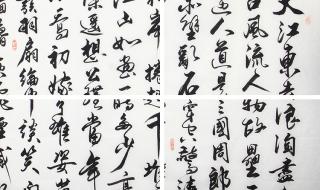 大江東去浪淘盡
古風流人物故壘
人道是三國周郎
赤壁亂石穿空驚濤
捲起千堆
江山如畫一時多少豪
遙想公瑾當年
喬初嫁了雄姿英
羽扇綸巾談笑